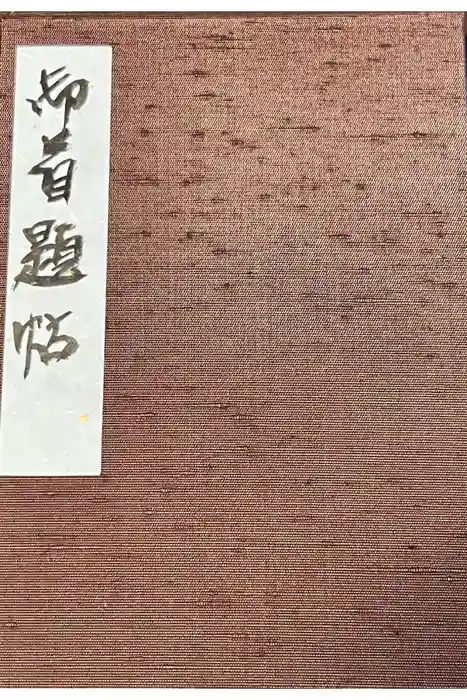 御首題帖